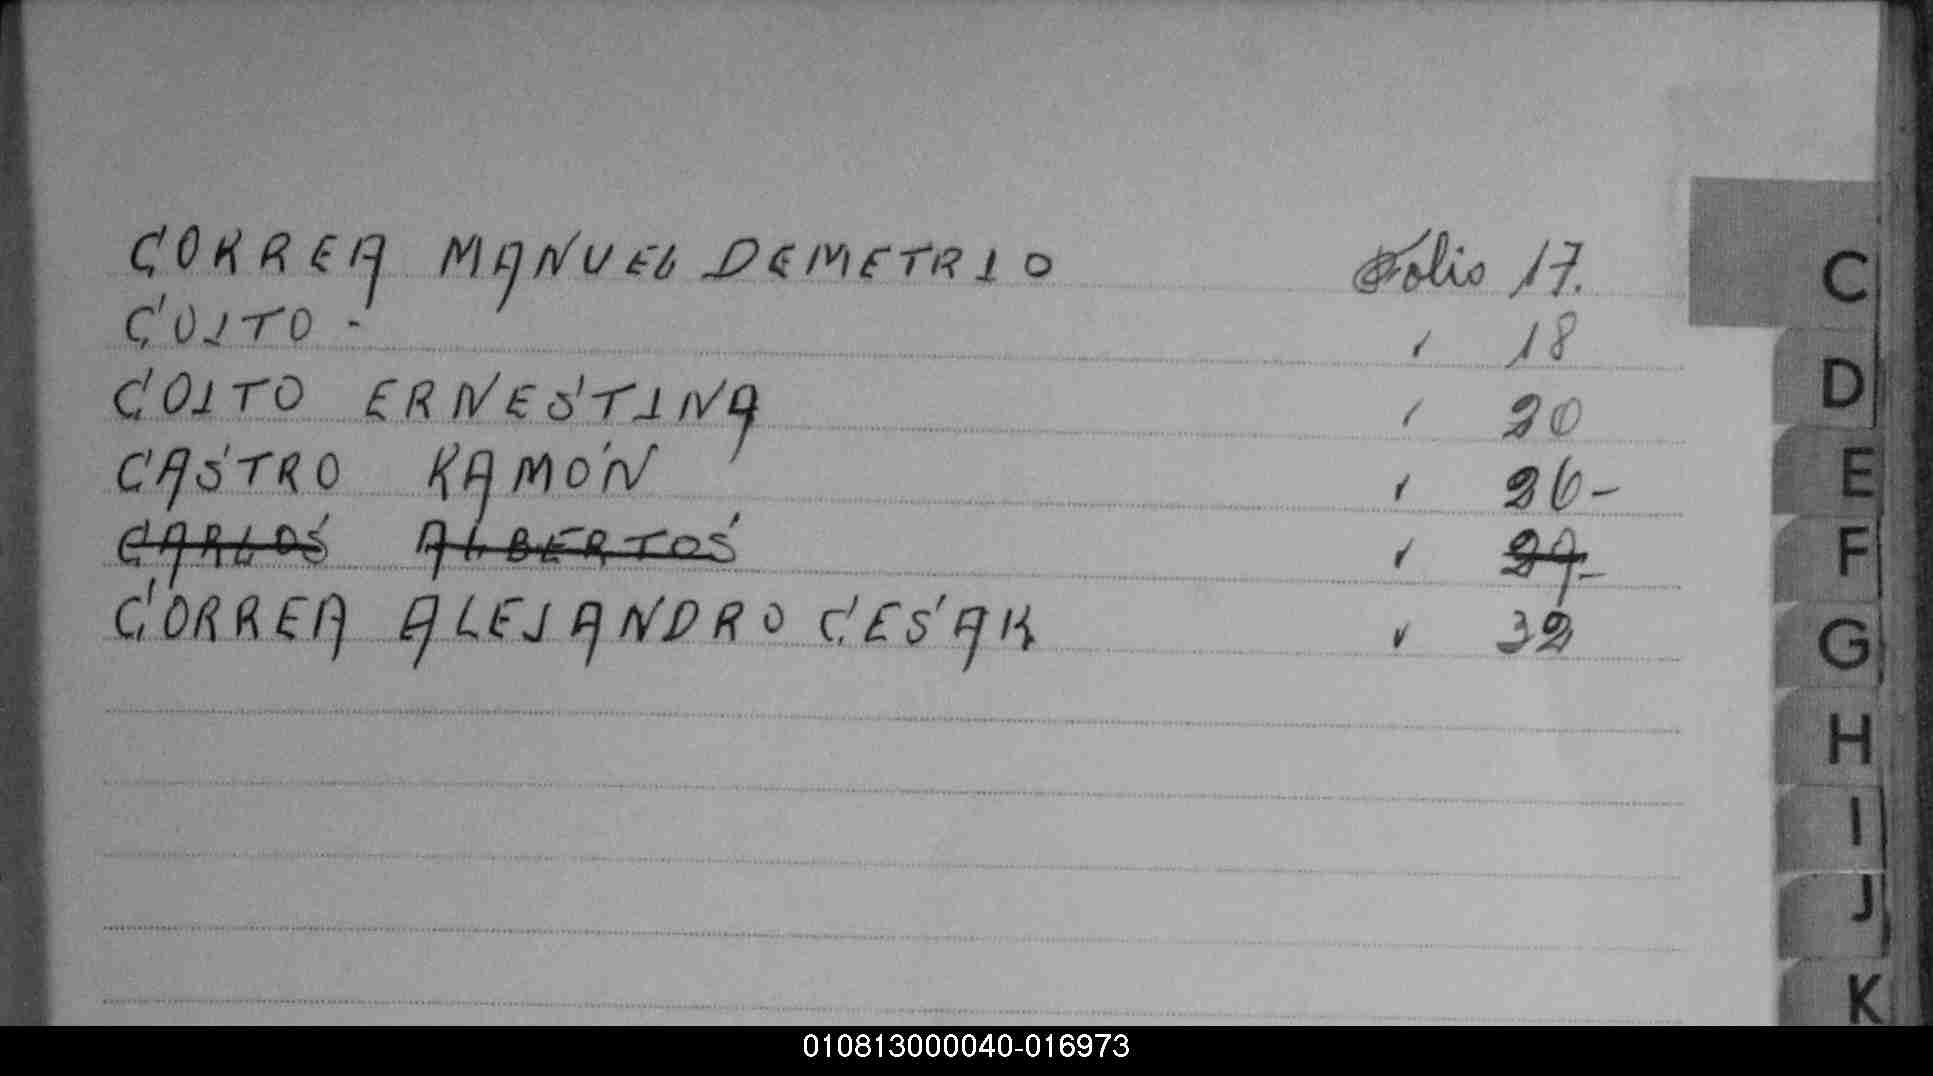 CORREA MANUEL DEMETRIO Folio 17.
COITO - " 18
COITO ERNESTINA " 20
CASTRO RAMÓN " 26-
CARLOS ALBERTOS " 29-
CORREA ALEJANDRO CESAR " 32
C
D
E
F
G
H
I
J
K
010813000040-016973